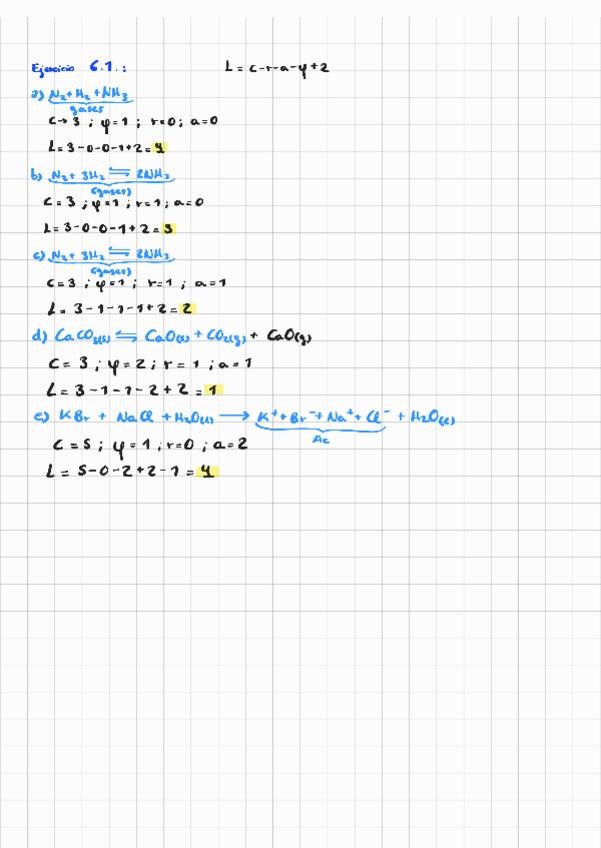 Ejercicio 6.1.: L = c-r-a-φ+2
a) N₂ + H₂ + NH₃
gases
C→3 ; φ=1 ; r=0 ; a=0
L = 3-0-0-1+2 = 4
b) N₂ + 3H₂ ⇌ 2NH₃
(gases)
C = 3 ; φ=1 ; r=1 ; a=0
L = 3-0-0-1+2 = 3
c) N₂ + 3H₂ ⇌ 2NH₃
(gases)
C=3 ; φ=1 ; r=1 ; a=1
L = 3-1-1-1+2 = 2
d) CaCO₃(s) ⇌ CaO(s) + CO₂(g) + CaO(g)
C = 3 ; φ=2 ; r=1 ; a=1
L = 3-1-1-2+2 = 1
e) KBr + NaCl + H₂O(l) ⟶ K⁺ + Br⁻ + Na⁺ + Cl⁻ + H₂O(l)
Ac
C = 5 ; φ=1 ; r=0 ; a=2
L = 5-0-2+2-1 = 4